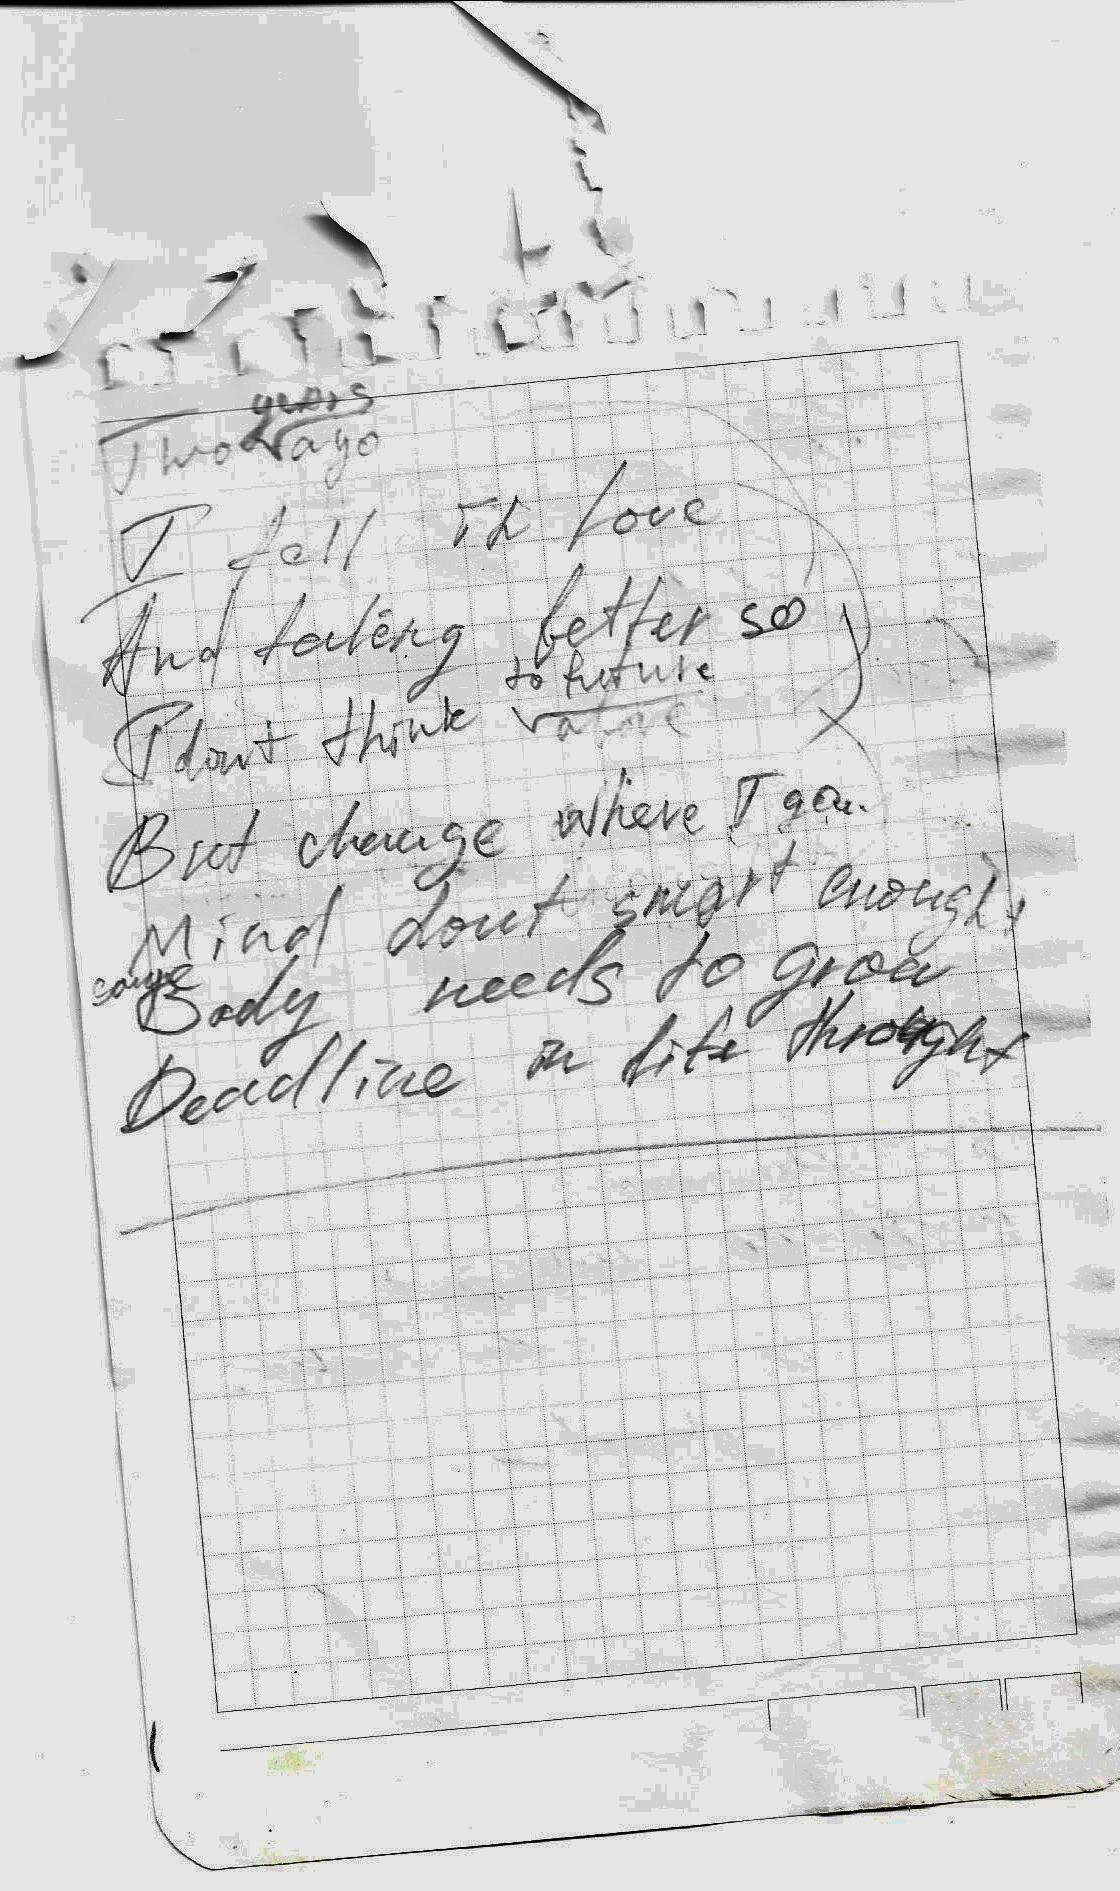 Two years ago
I fell in love
And feeling better so
I dont think to future
But change where I go
Mind dont smart enought
cause Body needs to grow
Deadline in life throught